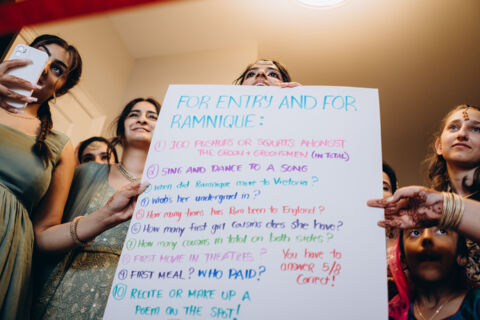 FOR ENTRY AND FOR
RAMNIQUE:
① 100 PUSHUPS OR SQUATS AMONGST
THE GROOM + GROOMSMEN (IN TOTAL)
② SING AND DANCE TO A SONG
③ When did Ramnique move to Victoria?
④ What's her undergrad in?
⑤ How many times has Pam been to England?
⑥ How many first cousins does she have?
⑦ How many cousins in total on both sides?
⑧ FIRST MOVIE IN THEATRES?
⑨ FIRST MEAL? WHO PAID?
You have to
answer 5/8
Correct!
⑩ RECITE OR MAKE UP A
POEM ON THE SPOT!